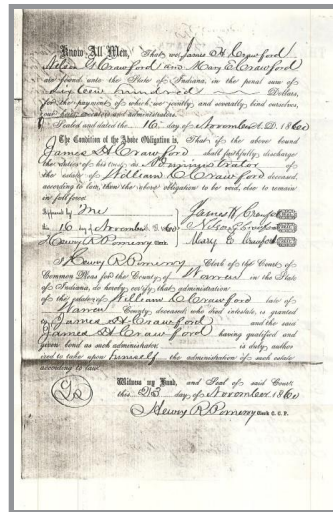 Know All Men, That we James H Crawford
Nelson G Crawford and Mary E Crawford
are bound unto the State of Indiana, in the penal sum of
Sixteen hundred Dollars,
for the payment of which we jointly and severally bind ourselves,
our heirs, executors and administrators.
Sealed and dated the 16 day of November A. D. 1860
The Condition of the Above Obligation is, That if the above bound
James H Crawford shall faithfully discharge
the duties of his trust as Administrator
the estate of William C Crawford deceased,
according to law, then the above obligation to be void, else to remain
in full force.
Approved by Me
the 16 day of November 1860
Hewey R Pomeroy Clerk.
James H Crawford
Nelson G Crawford
Mary E Crawford
I Hewey R Pomeroy Clerk of the Court of
Common Pleas for the County of Warren in the State
of Indiana, do hereby certify, that administration
of the estate of William C Crawford late of
Warren County, deceased, who died intestate, is granted
to James H Crawford and the said
James H Crawford having qualified and
given bond as such administrator is duly autho
rized to take upon himself the administration of such estate
according to law.
Witness my Hand, and Seal of said Court
this 23 day of November 1860
Hewey R Pomeroy Clerk C. C. P.